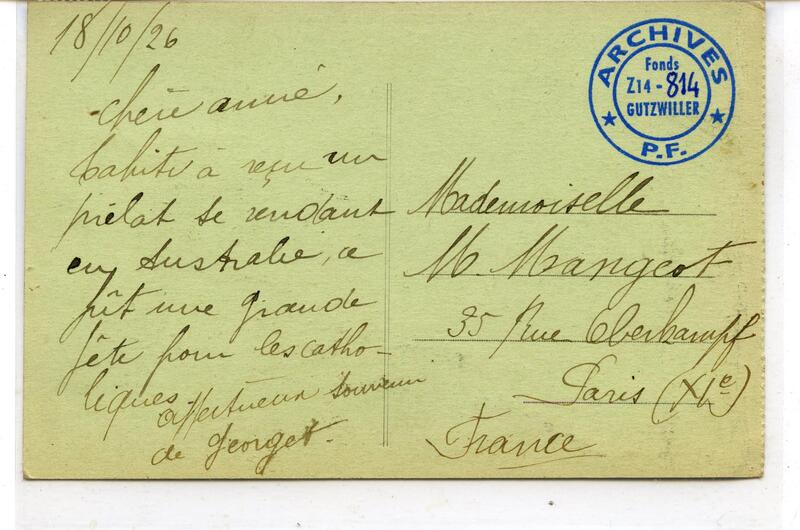 18/10/26
chère amie,
Tahiti à reçu un
prélat se rendant
en Australie, ce
fût une grande
fête pour les catho-
liques affectueux souvenir
de Georget.
ARCHIVES
Fonds
Z14 - 814
GUTZWILLER
P.F.
Mademoiselle
M. Mangeot
35 Rue Oberkampf
Paris (XIe)
France